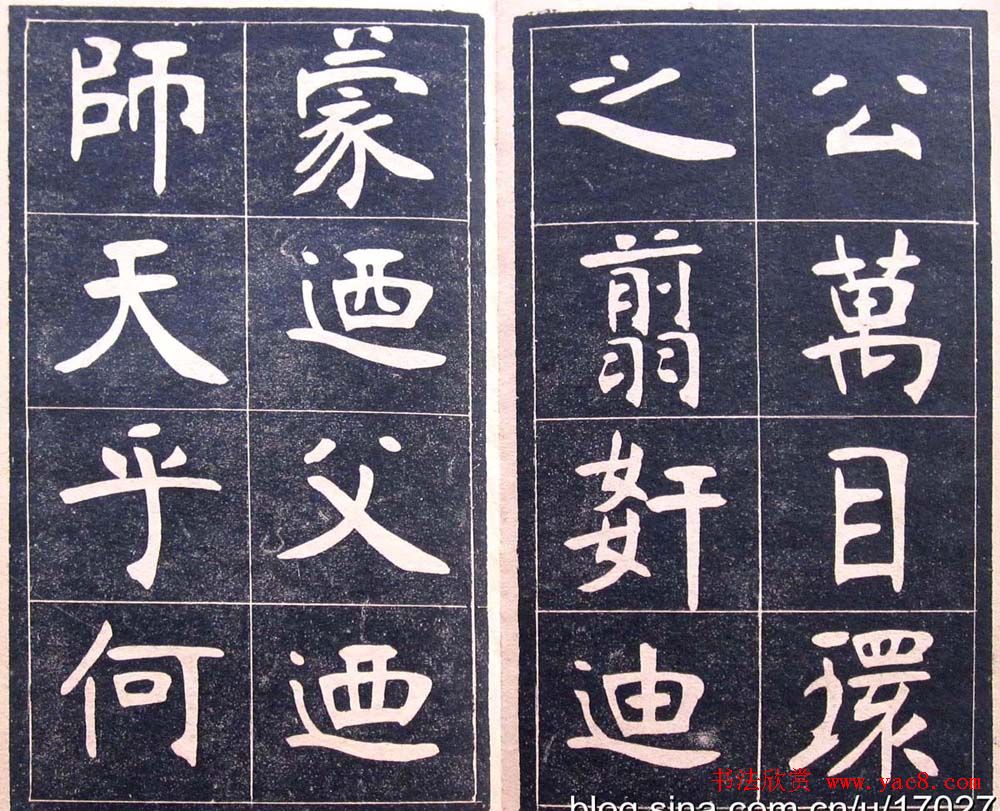 公萬目環
之翦奸迪
蒙迺父迺
師天乎何
书法欣赏 www.yac8.com
blog.sina.com.cn/u/17027